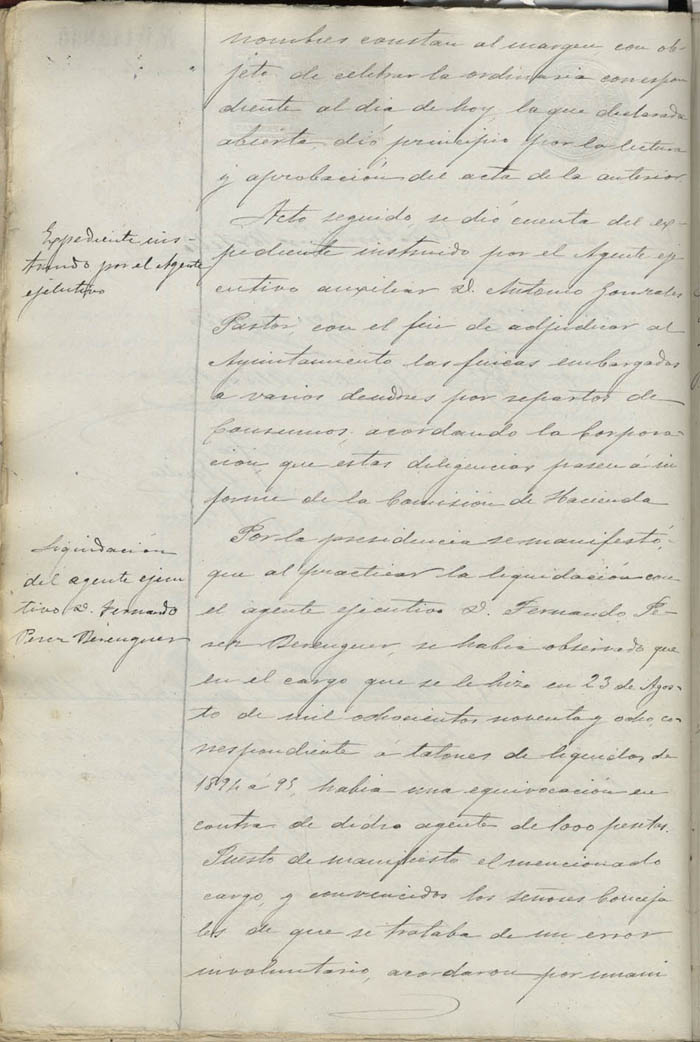 nombres constan al margen con ob-
jeto de celebrar la ordinaria correspon
diente al dia de hoy, la que declarada
abierta, dió principio por la lectura
y aprobación del acta de la anterior
Expediente ins-
truido por el Agente
ejecutivo
Acto seguido, se dió cuenta del ex-
pediente instruido por el Agente eje
cutivo auxiliar D. Antonio Gonzales
Pastor, con el fin de adjudicar al
Ayuntamiento las fincas embargadas
a varios deudores por repartos de
Consumos, acordando la Corpora-
cion que estas diligencias pasen á in
forme de la Comisión de Hacienda
Liquidación
del agente ejecu
tivo D. Fernando
Perez Berenguer
Por la presidencia se manifestó,
que al practicar la liquidación con
el agente ejecutivo D. Fernando Pe-
rez Berenguer, se habia observado que
en el cargo que se le hizo en 23 de Agos-
to de mil ochocientos noventa y ocho, co-
rrespondiente á talones de liquidos de
1894 á 95, habia una equivocación en
contra de dicho agente de 1000 pesetas.
Puesto de manifiesto el mencionado
cargo, y convencidos los señores Conceja
les de que se trataba de un error
involuntario, acordaron por unani